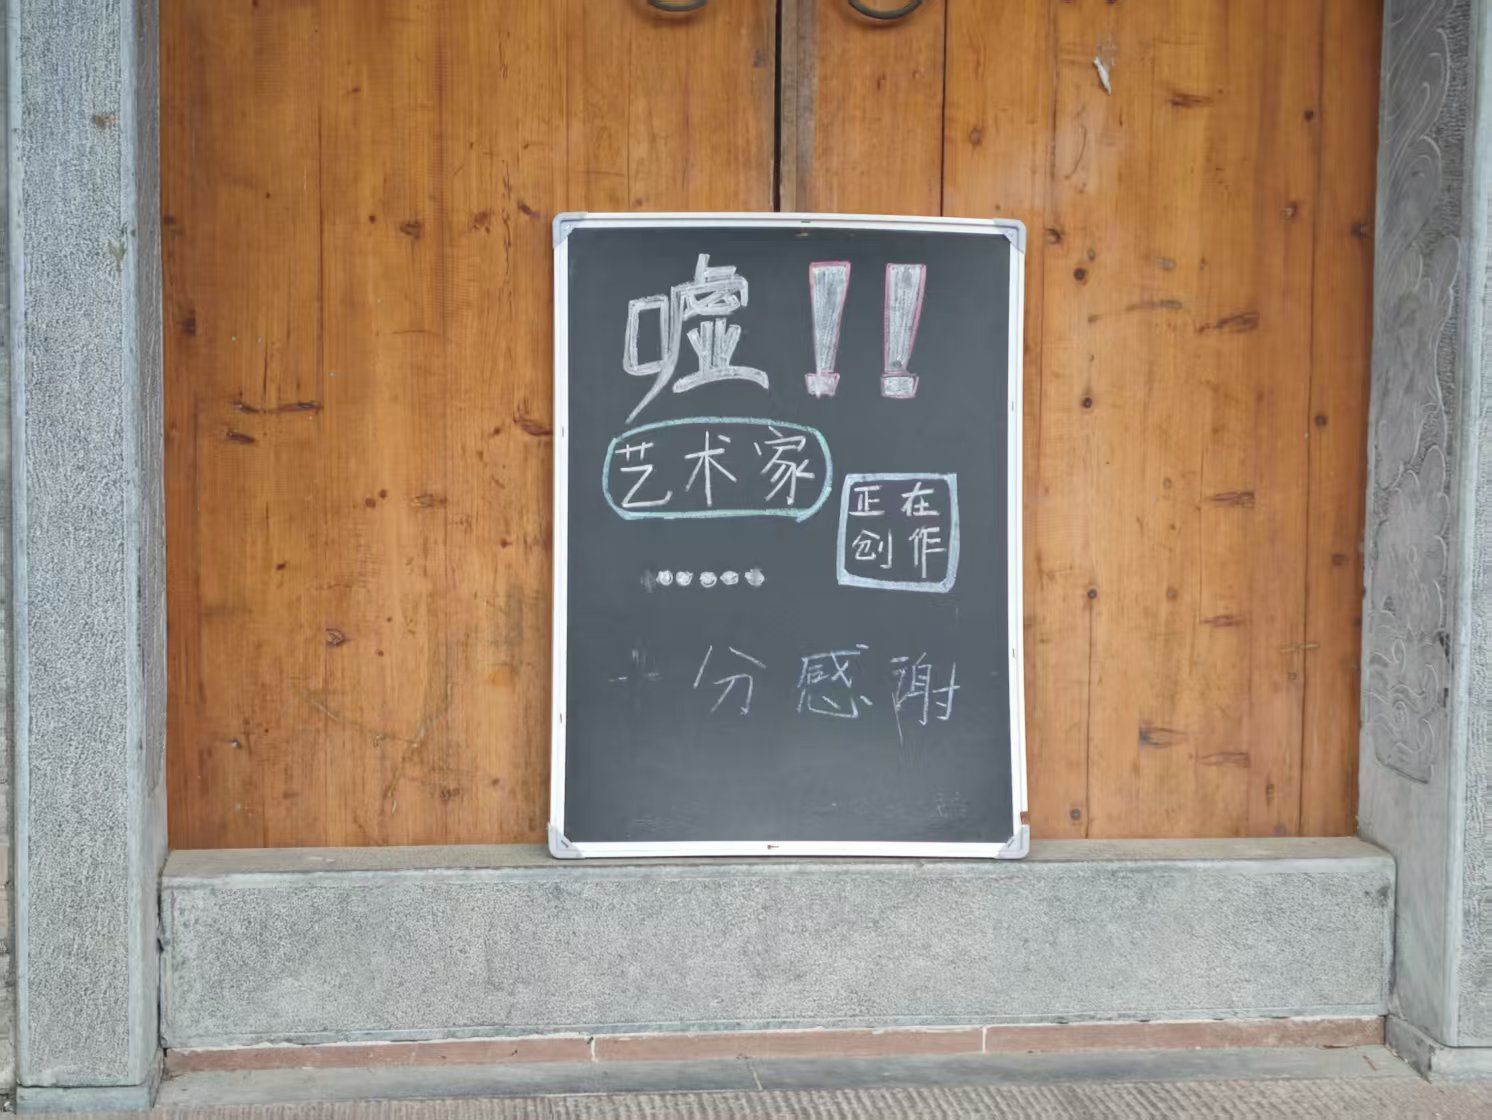 嘘!!
艺术家
正在
创作
·····
十分感谢